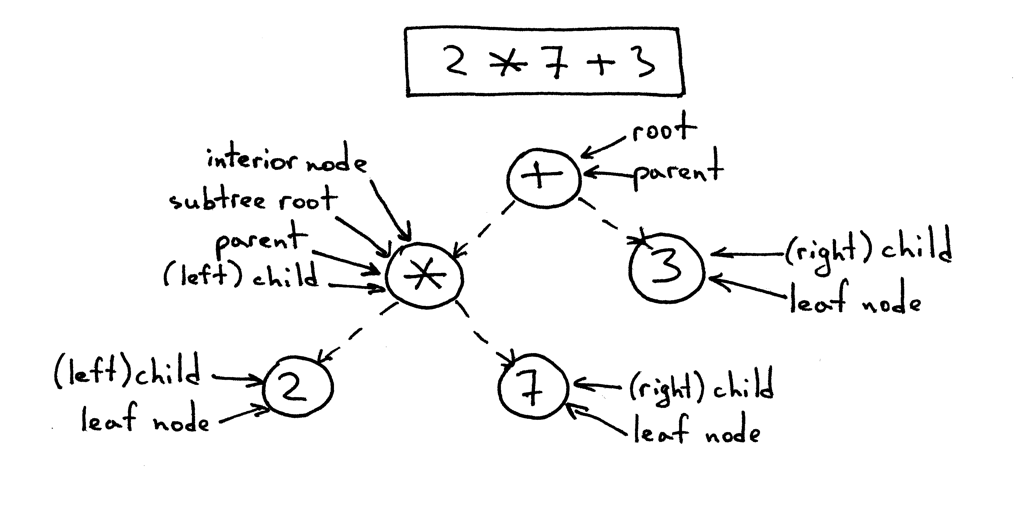 2 * 7 + 3
root
+
parent
interior node
subtree root
parent
(left) child
*
3
(right) child
leaf node
(left) child
2
leaf node
7
(right) child
leaf node